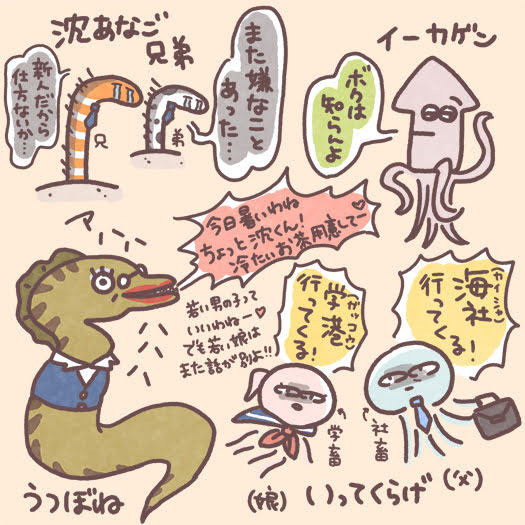 沈あなご
兄弟
新人だから
仕方ないか…
兄
弟
また嫌なこと
あった…
イーカゲン
ボクは
知らんよ
今日暑いわね♡
ちょっと沈くん!
冷たいお茶用意してー
若い男の子って
いいわねー♡
でも若い娘は
また話が別よ!!
うつぼね
学港
ガッコウ
行ってくる!
海社
(カイシャ)
行ってくる!
学畜
社畜
(娘)
いってくらげ
(父)